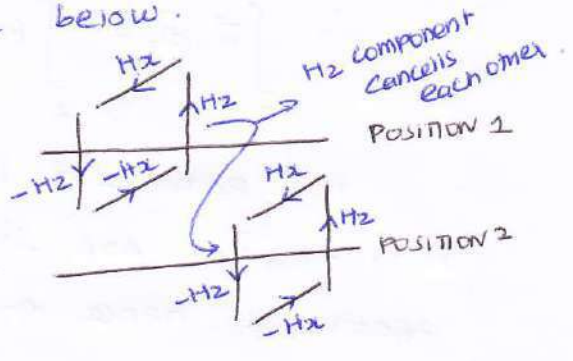 below.
Hz component
cancells
each other.
Hx
Hz
POSITION 1
-Hz
-Hx
Hx
Hz
POSITION 2
-Hz
-Hx